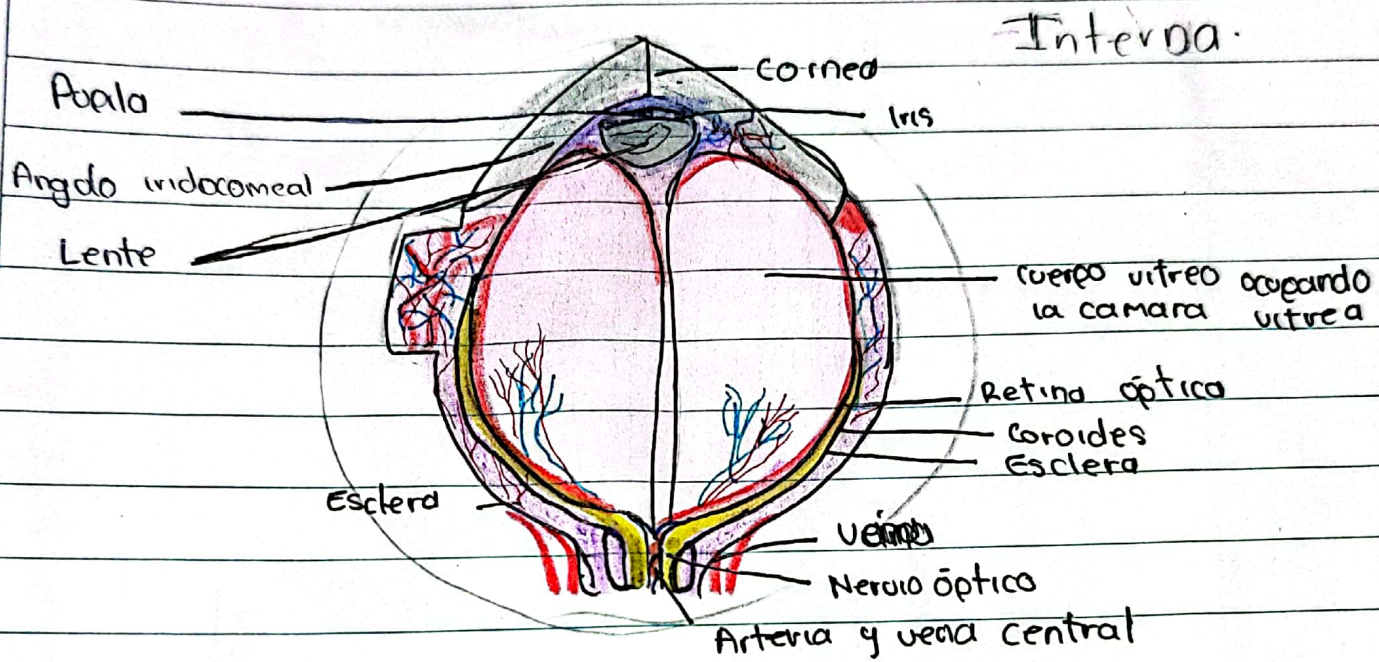 Interna.
Cornea
Pupila
Iris
Angulo iridocorneal
Lente
Cuerpo vitreo ocupando
la camara vitrea
Retina óptica
Coroides
Esclera
Esclera
Nervio óptico
Arteria y vena central